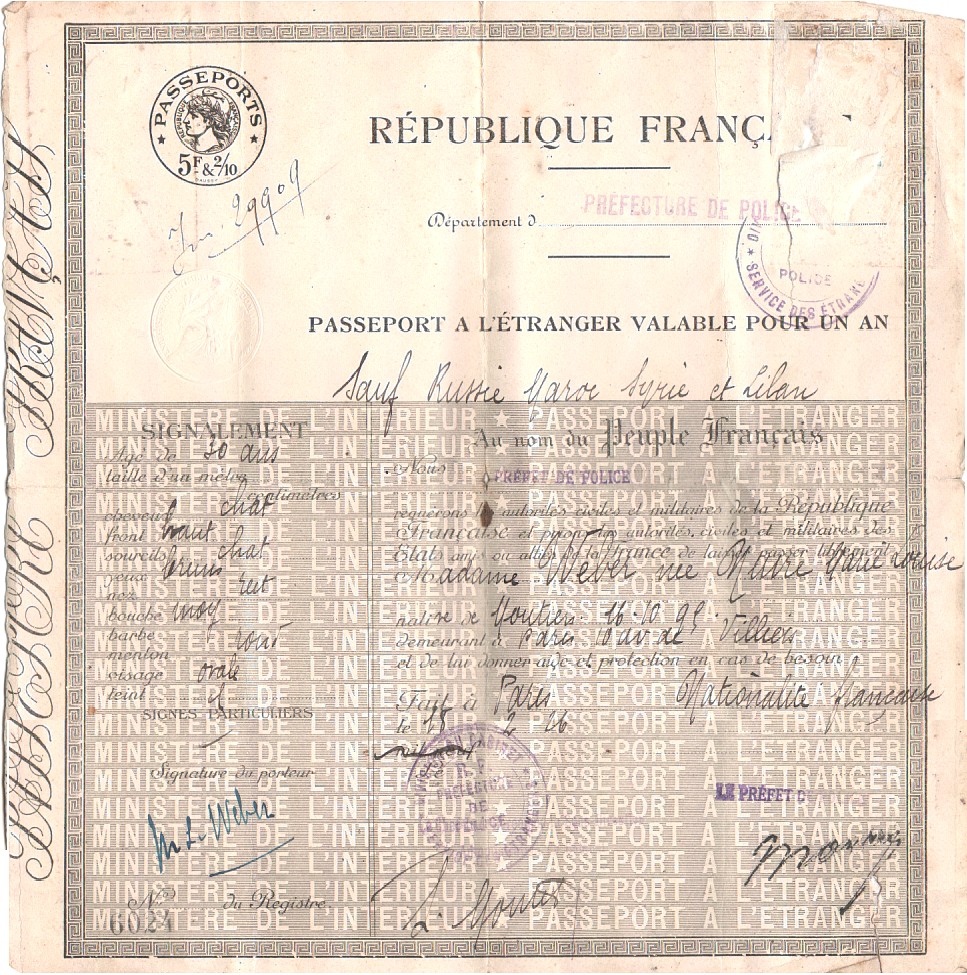 PASSEPORTS
RÉPUBLIQUE FRANÇAISE
5F. & 2/10
RÉPUBLIQUE FRANÇ
29909
Département d
PRÉFECTURE DE POLICE
POLICE
SERVICE DES ÉTRANG
PASSEPORT A L'ÉTRANGER VALABLE POUR UN AN
Sauf Russie Maroc Syrie et Liban
MINISTERE DE L'INTERIEUR ★ PASSEPORT A L'ETRANGER
SIGNALEMENT
Au nom du Peuple Français
Agé de 30 ans
Nous
taille d'un mètre
PRÉFET DE POLICE
centimètres
cheveux chat
requérons les autorités civiles et militaires de la République
front haut
Française et prions les autorités civiles et militaires des
sourcils chat
Etats amis ou alliés de la France de laisser passer librement
yeux bruns
Madame Weber née Marie Louise
nez rect
bouche moy
native de Moutiers 16-10-95
barbe
demeurant à Paris 10 av de Villiers
menton rond
et de lui donner aide et protection en cas de besoin
visage ovale
teint
Fait à Paris
Nationalité française
SIGNES PARTICULIERS
le 15 2 26
Signature du porteur
PRÉFECTURE
DE
LE PRÉFET D
M L Weber
Nos du Registre
6024